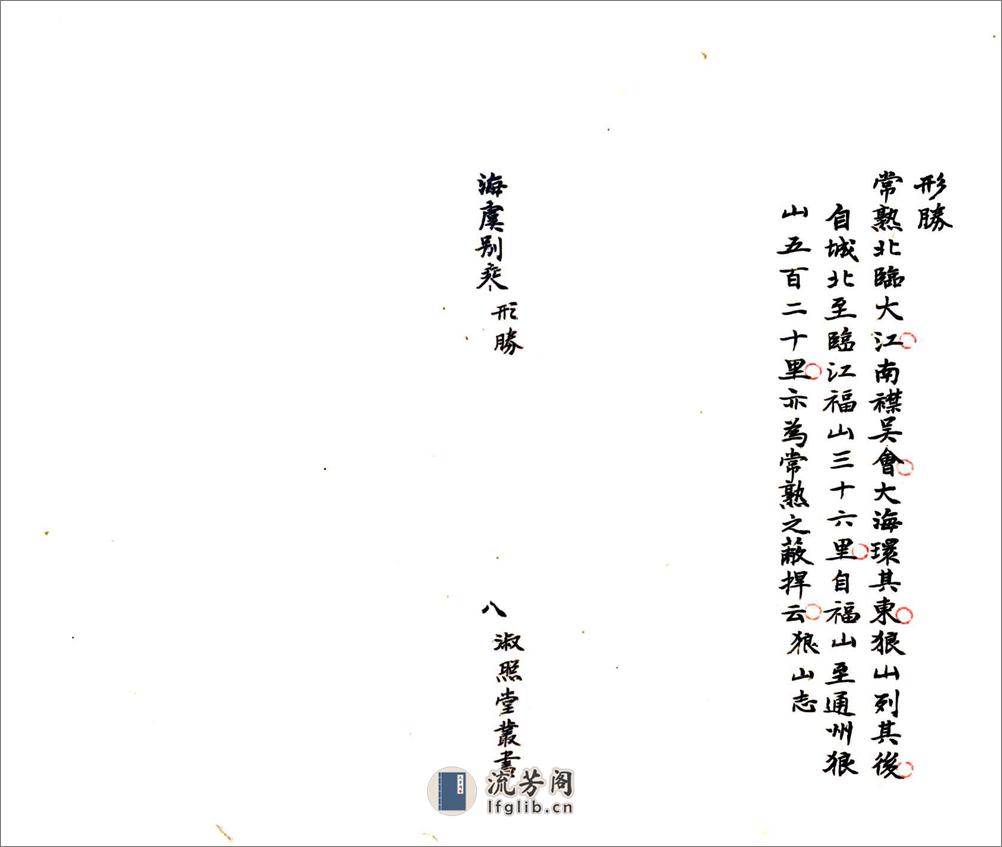 形勝
常熟北臨大江南襟吴會大海環其東狼山列其後
自城北至臨江福山三十六里自福山至通州狼
山五百二十里亦為常熟之蔽捍云狼山志
海虞别乘 形勝
八 淑照堂叢書
流芳阁
lfglib.cn